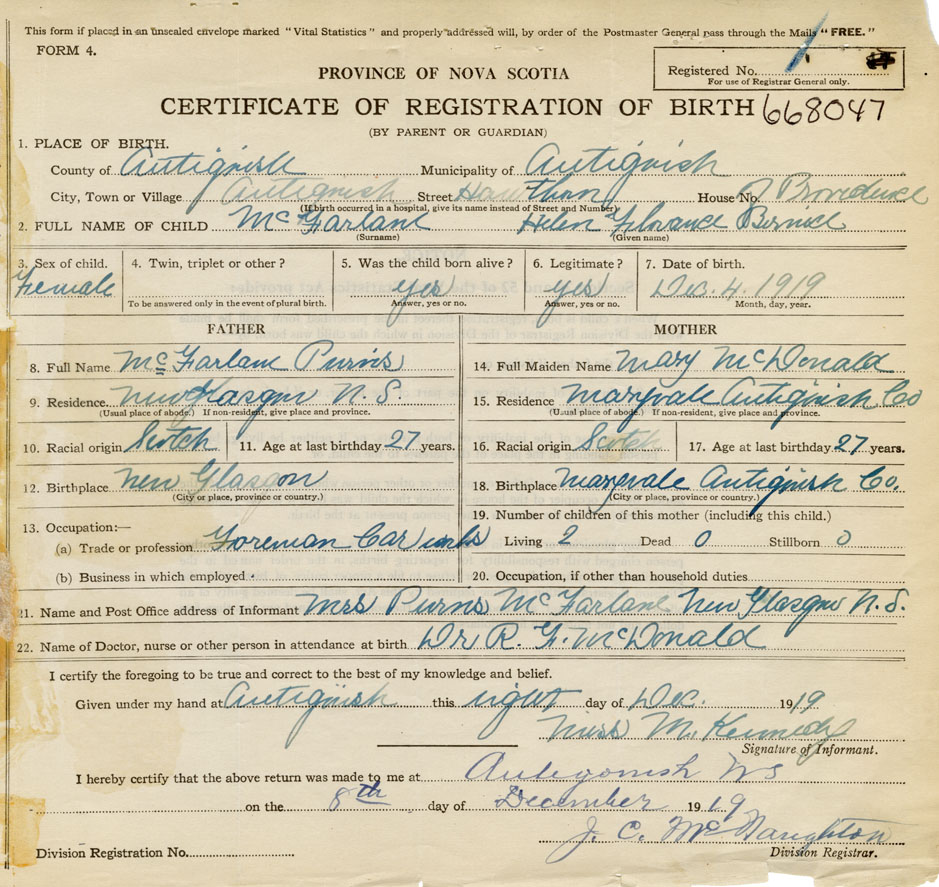 This form if placed in an unsealed envelope marked "Vital Statistics" and properly addressed will, by order of the Postmaster General pass through the Mails "FREE."
FORM 4.
Registered No.
For use of Registrar General only.
PROVINCE OF NOVA SCOTIA
CERTIFICATE OF REGISTRATION OF BIRTH 668047
(BY PARENT OR GUARDIAN)
1. PLACE OF BIRTH.
County of Antigonish Municipality of Antiguish
City, Town or Village Antiguish Street Hawthorn House No. 7 Providence
(If birth occurred in a hospital, give its name instead of Street and Number)
2. FULL NAME OF CHILD McFarlane Helen Florance Bernice
(Surname) (Given name)
3. Sex of child. 4. Twin, triplet or other? 5. Was the child born alive? 6. Legitimate? 7. Date of birth.
Female yes yes Dec. 4. 1919
To be answered only in the event of plural birth. Answer, yes or no. Answer, yes or no. Month, day, year.
FATHER MOTHER
8. Full Name McFarlane Purvis 14. Full Maiden Name Mary McDonald
9. Residence New Glasgow N.S. 15. Residence Maryvale Antiguish Co
(Usual place of abode.) If non-resident, give place and province. (Usual place of abode.) If non-resident, give place and province.
10. Racial origin Scotch 11. Age at last birthday 27 years. 16. Racial origin Scotch 17. Age at last birthday 27 years.
12. Birthplace New Glasgow 18. Birthplace Maryvale Antiguish Co.
(City or place, province or country.) (City or place, province or country.)
13. Occupation:— 19. Number of children of this mother (including this child.)
(a) Trade or profession Foreman Car works Living 2 Dead 0 Stillborn 0
(b) Business in which employed 20. Occupation, if other than household duties
21. Name and Post Office address of Informant Mrs Purvis McFarlane New Glasgow N.S.
22. Name of Doctor, nurse or other person in attendance at birth Dr R. F. McDonald
I certify the foregoing to be true and correct to the best of my knowledge and belief.
Given under my hand at Antiguish this eight day of Dec. 1919
Miss M. Kennedy
Signature of Informant.
I hereby certify that the above return was made to me at Antigonish NS
on the 8th day of December 1919
J. C. McNaughton
Division Registration No. Division Registrar.